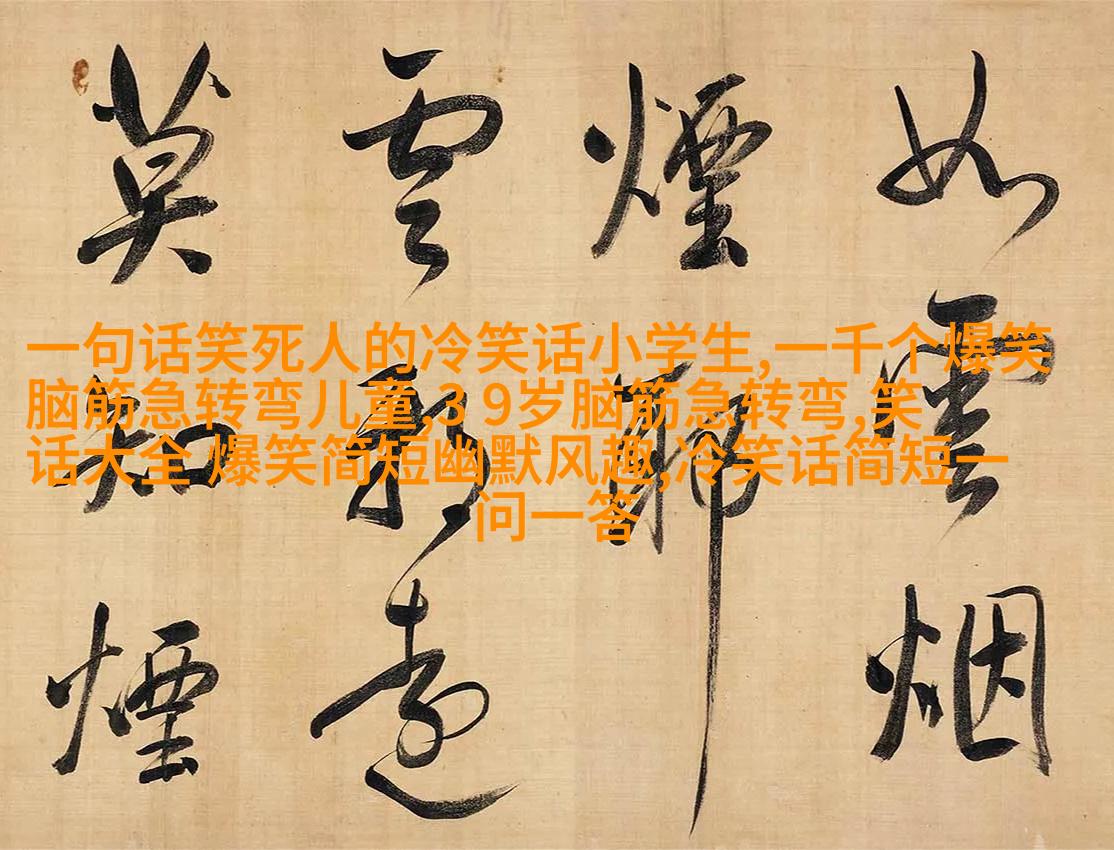 一句话笑死人的冷笑话小学生,一千个爆笑
脑筋急转弯儿童,3 9岁脑筋急转弯,笑
话大全 爆笑简短幽默风趣,冷笑话简短一
问一答
如雲烟
煙
雲遠
莫知煙